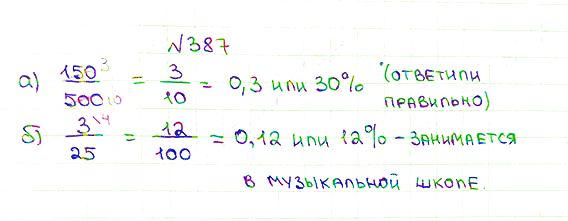 №387
а) 150³/500₁₀ = 3/10 = 0,3 или 30% (ответили
правильно)
б) 3\⁴/25 = 12/100 = 0,12 или 12% – занимается
в музыкальной школе.